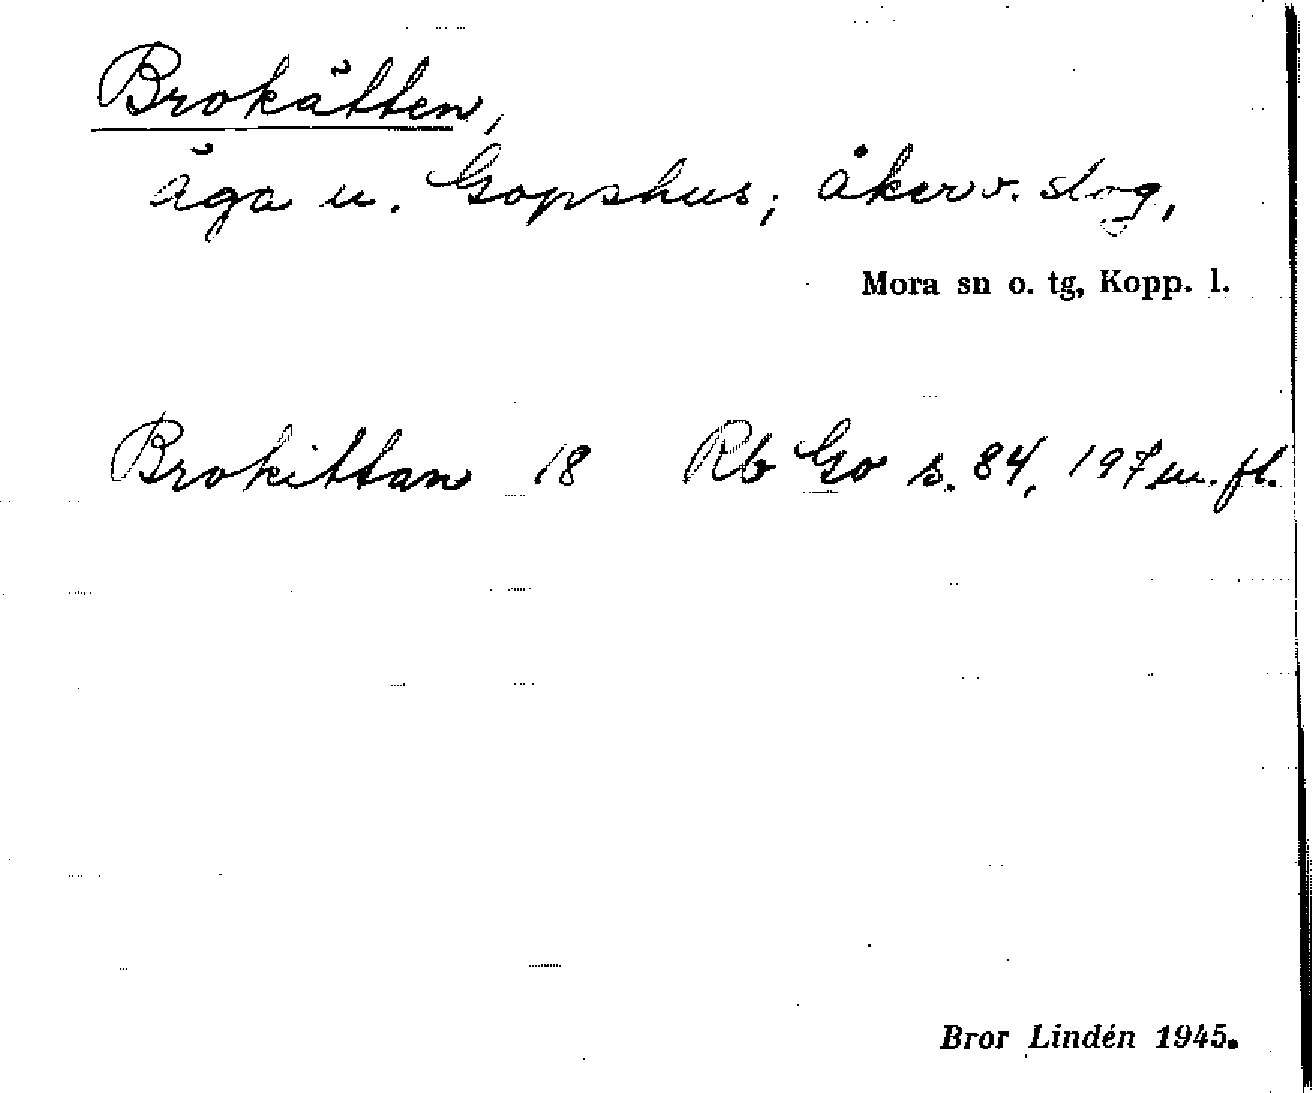 Brokätten,
äga u. Gopshus; åker v. slog,
Mora sn o. tg, Kopp. l.
Brokittan 18 Rb Go s. 84, 197 m. fl.
Bror Lindén 1945.